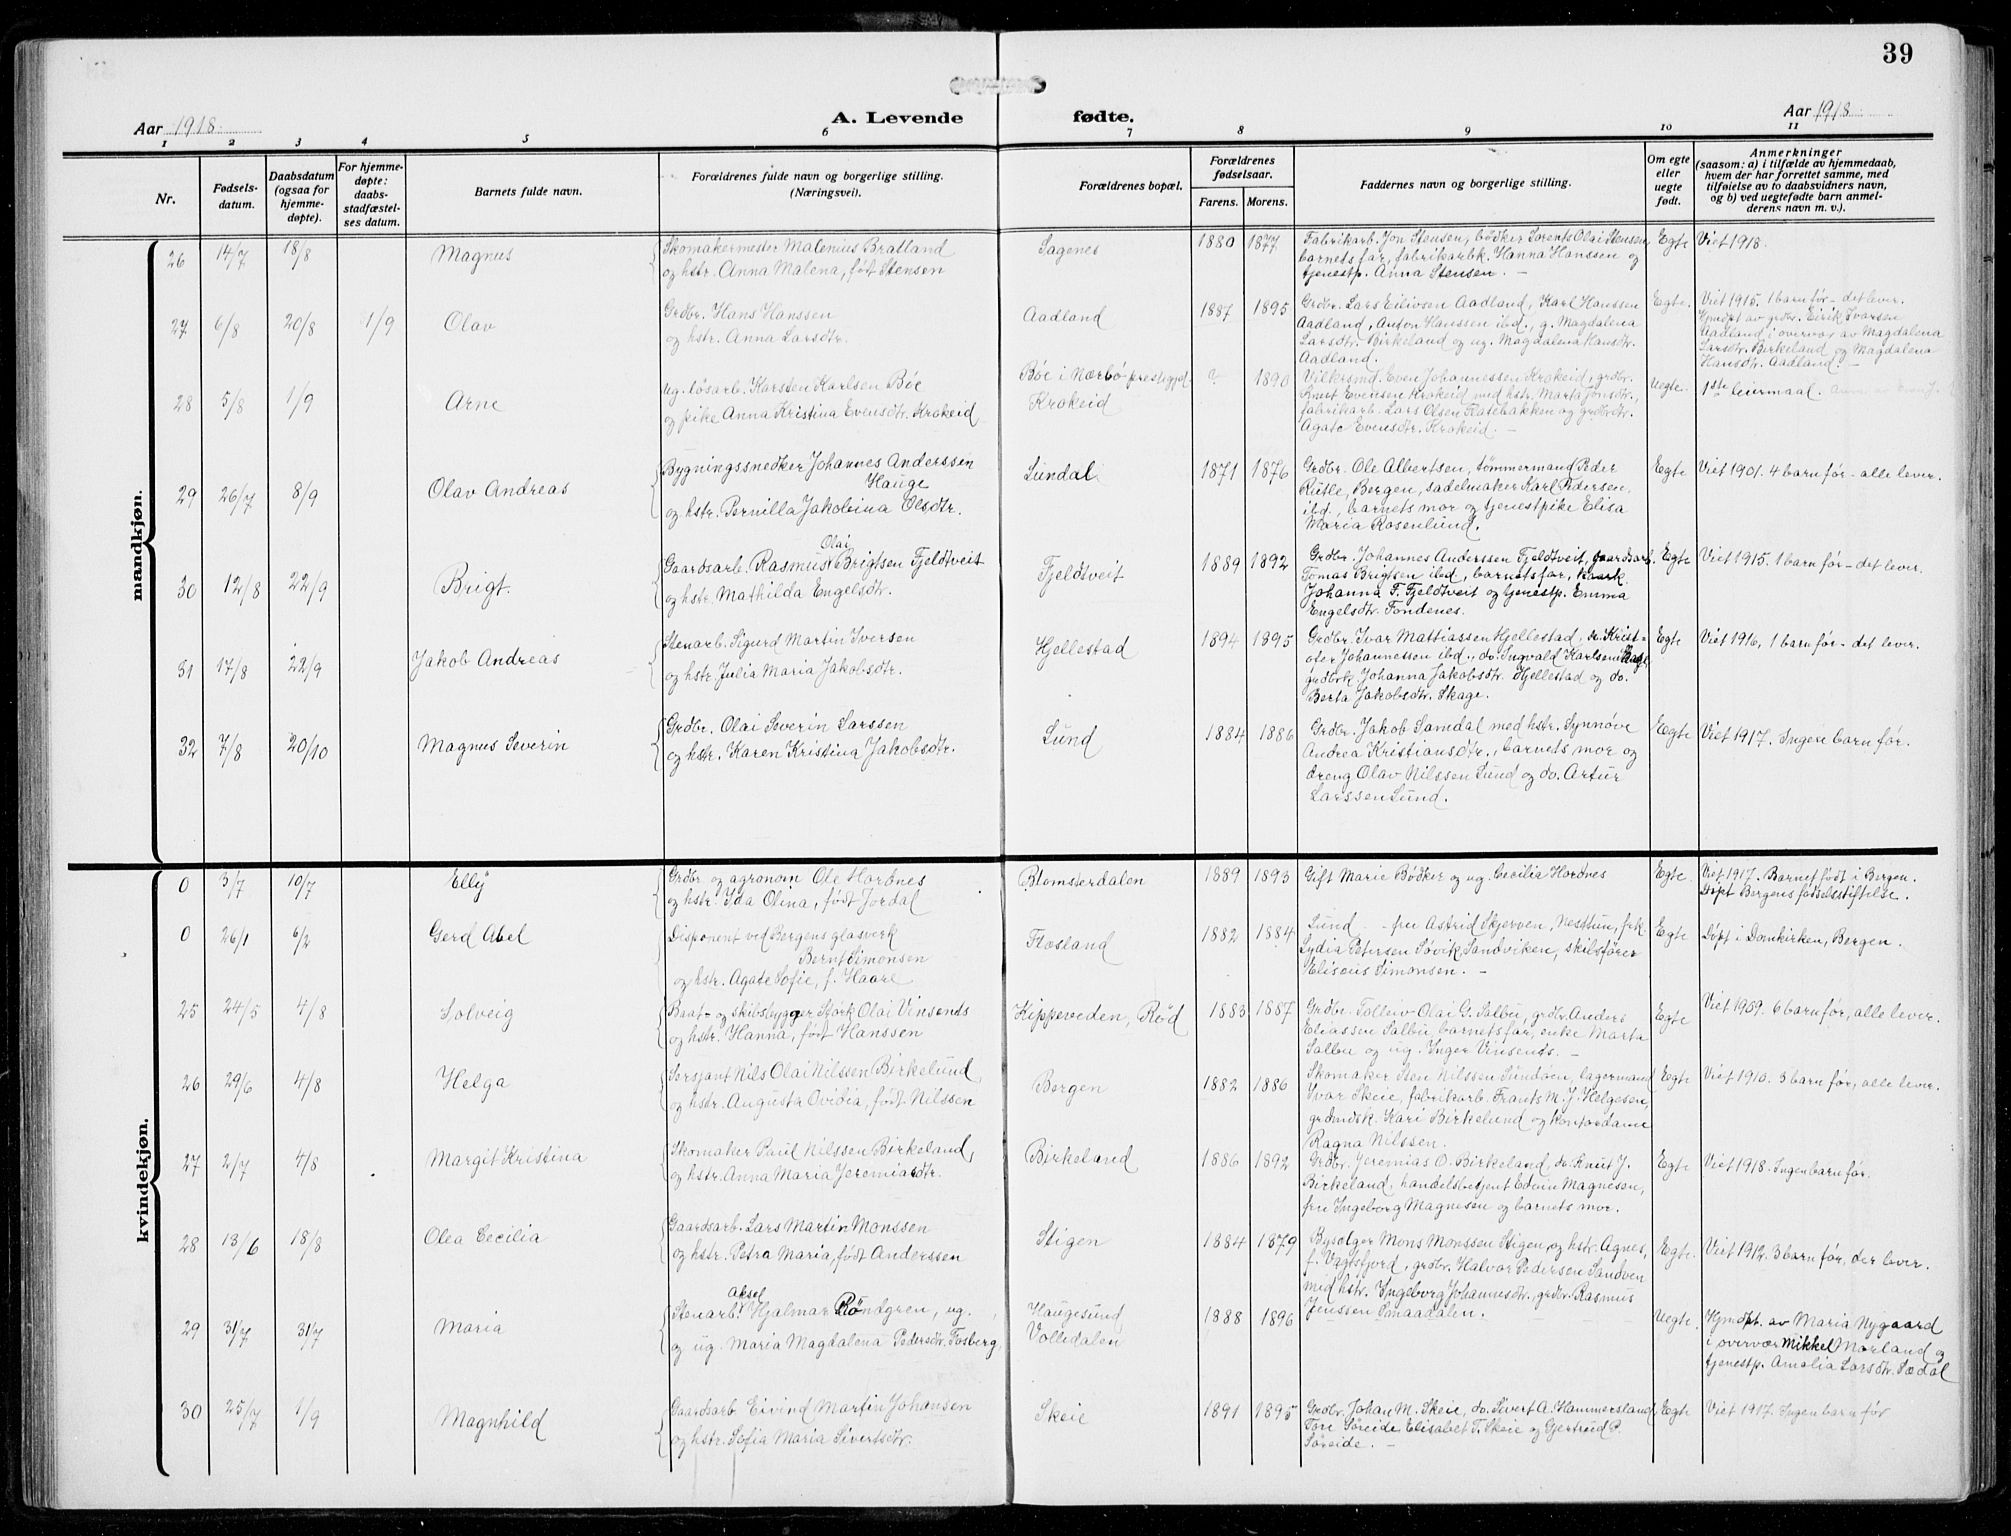 39
Aar 1918.
A. Levende fødte.
Aar 1918.
1 2 3 4 5 6 7 8 9 10 11
Nr.
Fødsels-
datum.
Daabsdatum
(ogsaa for
hjemme-
døpte).
For hjemme-
døpte:
daabs-
stadfæstel-
ses datum.
Barnets fulde navn.
Forældrenes fulde navn og borgerlige stilling.
(Næringsvei).
Forældrenes bopæl.
Forældrenes
fødselsaar.
Farens. Morens.
Faddernes navn og borgerlige stilling.
Om egte
eller
uegte
født.
Anmerkninger
(saasom: a) i tilfælde av hjemmedaab,
hvem der har forrettet samme, med
tilføielse av to daabsvidners navn,
og b) ved uegtefødte barn anmel-
derens navn m. v.).
mandkjøn.
26 14/7 18/8 Magnus
Skomakermester Malenius Bratland
og hstr. Anna Malena, født Stensen
Sagenes 1880 1877
Fabrikarb. Jon Stensen, bødker Sorents Olai Stensen,
barnets far, fabrikarbk. Hanna Hanssen og
tjenestp. Anna Stensen. -
Egte Viet 1918.
27 6/8 20/8 1/9 Olav
Grdbr. Hans Hanssen
og hstr. Anna Larsdtr.
Aadland 1887 1895
Grdbr. Lars Eilivsen Aadland, Karl Hanssen
Aadland, Anton Hanssen ibd., g. Magdalena
Larsdtr. Birkeland og ug. Magdalena Hansdtr.
Aadland.
Egte. Viet 1915. 1 barn før - det lever.
Hjmdøpt av grdbr. Eirik Ivarsen
Aadland i overvær av Magdalena
Larsdtr. Birkeland og Magdalena
Hansdtr. Aadland. -
28 5/8 1/9 Arne
Ug. løsarb. Karsten Karlsen Bøe
og pike Anna Kristina Evensdtr. Krokeid
Bøe i Nærbø prestegjd.
Krokeid
? 1890
Vilkersmd. Even Johannessen Krokeid, grdbr.
Knut Evensen Krokeid med hstr. Marta Jonsdtr.,
fabrikarb. Lars Olsen Flatebakken og grdbrdtr.
Agate Evensdtr. Krokeid. -
Uegte. 1ste leiermaal.
29 26/7 8/9 Olav Andreas
Bygningssnedker Johannes Anderssen
Hauge
og hstr. Pernilla Jakobina Olsdtr.
Lundal 1871 1876
Grdbr. Ole Albertsen, tømmermand Peder
Rutle, Bergen, sadelmaker Karl Pedersen
ibd., barnets mor og tjenestpike Elisa
Maria Rosenlund.
Egte Viet 1901. 4 barn før - alle lever.
30 12/8 22/9 Brigt.
Olai
Gaardsarb. Rasmus Brigtsen Fjeldtveit
og hstr. Mathilda Engelsdtr.
Fjeldtveit 1889 1892
Grdbr. Johannes Anderssen Fjeldtveit, gaardsarb.
Tomas Brigtsen ibd, barnets far, kaark.
Johanna F. Fjeldtveit og tjenestp. Emma
Engelsdtr. Tondenes.
Egte Viet 1915. 1 barn før - det lever.
31 17/8 22/9 Jakob Andreas
Stenarb. Sigurd Martin Iversen
og hstr. Julia Maria Jakobsdtr.
Hjellestad 1894 1895
Grdbr. Ivar Mattiassen Hjellestad, do. Krist-
ofer Johannessen ibd., do. Ingvald Karlsen
grdbrk Johanna Jakobsdtr. Hjellestad og do.
Berta Jakobsdtr. Skage.
Egte Viet 1916, 1 barn før - det lever.
32 7/8 20/10 Magnus Severin
Grdbr. Olai Severin Larssen
og hstr. Karen Kristina Jakobsdtr.
Lund 1884 1886
Grdbr. Jakob Samdal med hstr. Synnøve
Andrea Kristiansdtr., barnets mor og
dreng Olav Nilssen Lund og do. Artur
Larssen Lund.
Egte Viet 1917. Ingen barn før.
kvindekjøn.
0 3/7 10/7 Elly
Grdbr og agronom Ole Hordnes
og hstr. Ida Olina, født Jordal
Blomsterdalen 1889 1893
Gift Marie Bødker og ug. Cecilia Hordnes
Egte. Viet 1917. Barnet født i Bergen.
Døpt Bergens fødselsstiftelse.
0 26/1 6/2 Gerd Abel
Disponent ved Bergens glasverk
Bernt Simonsen
og hstr. Agate Sofie, f. Haare
Flosland 1882 1884
Lund - fru Astrid Skjerven, Nesttun, frk.
Lydia Petersen Søvik Sandviken, skibsfører
Eliseus Simonsen. -
Egte Døpt i Domkirken, Bergen.
25 24/5 4/8 Solveig
Baat- og skibsbygger Störk Olai Vinsents
og hstr. Hanna, født Hanssen
Kippeveden, Rød 1883 1887
Grdbr. Tolleiv Olai G. Salbu, grdbr. Anders
Eliassen Salbu barnets far, enke Marta
Salbu og ug. Inger Vinsents. -
Egte Viet 1909. 6 barn før, alle lever.
26 29/6 4/8 Helga
Sersjant Nils Olai Nilssen Birkelund,
og hstr. Augusta Ovidia, født Nilssen
Bergen 1882 1886
Skomaker Sten Nilssen Sundøen, lagermand
Ivar Skeie, fabrikarb. Frants M. J. Helgesen,
grdmdsk. Kari Birkelund og kontordame
Ragna Nilssen.
Egte Viet 1910. 3 barn før, alle lever.
27 2/7 4/8 Margit Kristina
Skomaker Paul Nilssen Birkeland,
og hstr. Anna Maria Jeremiasdtr.
Birkeland 1886 1892
Grdbr. Jeremias O. Birkeland, do. Knut J.
Birkeland, handelsbetjent Edvin Magnesen,
fru Ingeborg Magnesen og barnets mor.
Egte Viet 1918. Ingen barn før.
28 13/6 18/8 Olea Cecilia
Gaardsarb. Lars Martin Monssen
og hstr. Petra Maria, født Anderssen
Stigen 1884 1879
Byselger Mons Monssen Stigen, og hstr. Agnes,
f. Vagtsfjord, grdbr. Halvor Pedersen Sandven
med hstr. Ingeborg Johannesdtr., grdbr. Rasmus
Jenssen Smaadalen.
Egte. Viet 1912. 3 barn før, der lever.
29 31/7 31/7 Maria
Aksel
Stenarb. Hjalmar Röndgren, ug.
og ug. Maria Magdalena Pedersdtr. Tosberg
Haugesund
Volledalen
1888 1896
Uegte. Hjmdpt. av Maria Nygaard
i overvær Mikkel Morland og
tjenestp. Amalia Larsdtr. Sædal
30 25/7 1/9 Magnhild
Gaardsarb Eivind Martin Johansen
og hstr. Sofia Maria Sivertsdtr.
Skeie 1891 1895
Grdbr. Johan M. Skeie, do. Sivert A. Hammersland
Tore Søreide, Elisabet T. Skeie og Gjertrud P.
Søreide. -
Egte Viet 1917. Ingen barn før